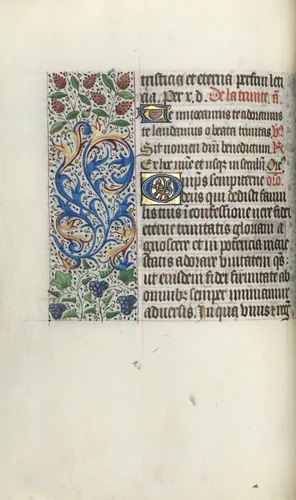 tristicia et eterna perfrui leti
cia. Per x.d. De la trinite. an.
Te invocamus te adoramus
te laudamus o beata trinitas V
Sit nomen dni benedictum R
Ex hoc nunc et usqz in seculum Or
Omps sempiterne oro.
deus qui dedisti famul
lis tuis i confessione vere fidei
eterne trinitatis gloriam a
gnoscere et in potencia maie
statis adorare unitatem qs
ut eiusdem fidei firmitate ab
omnibz semper muniamur
adversis. In qua vivis et reg